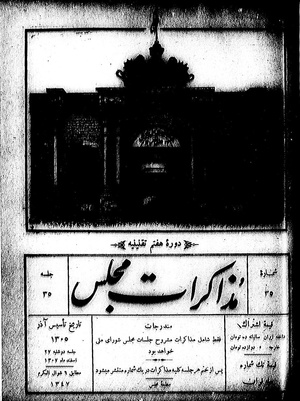 دورهٔ هفتم تقنینیه
مذاکرات مجلس
شماره
۳۵
جلسه
۳۵
تاریخ تأسیس آذر
۱۳۰۵
جلسه دوشنبه ۲۷
اسفند ماه ۱۳۰۷
مطابق ۶ شوال المکرم
۱۳۴۷
مندرجات
فقط شامل مذاکرات مشروح جلسات مجلس شورای ملی
خواهد بود
پس از ختم هر جلسه کلیه مذاکرات در یک شماره منتشر میشود
مطبعه مجلس
قیمت اشتراک
داخله ایران سالیانه ده تومان
خارجه دوازده تومان
قیمت تک شماره